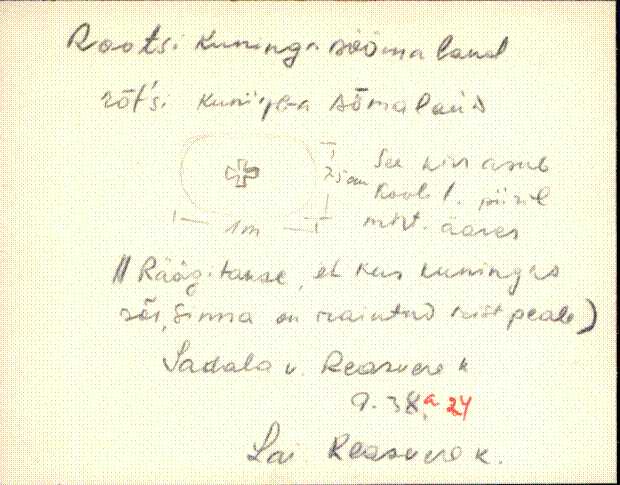 Rootsi kuninga söömalaud
rõt́si kuniŋga sȭmalaùᴅ
See kivi asub
75 cm
Kooli l. piiril
1m
mnt. ääres
// Räägitakse, et kus kuningas
sõi, sinna on raiutud rist peale)
Sadala v. Reastvere k
a. 38 a 24
Lai Reastvere k.